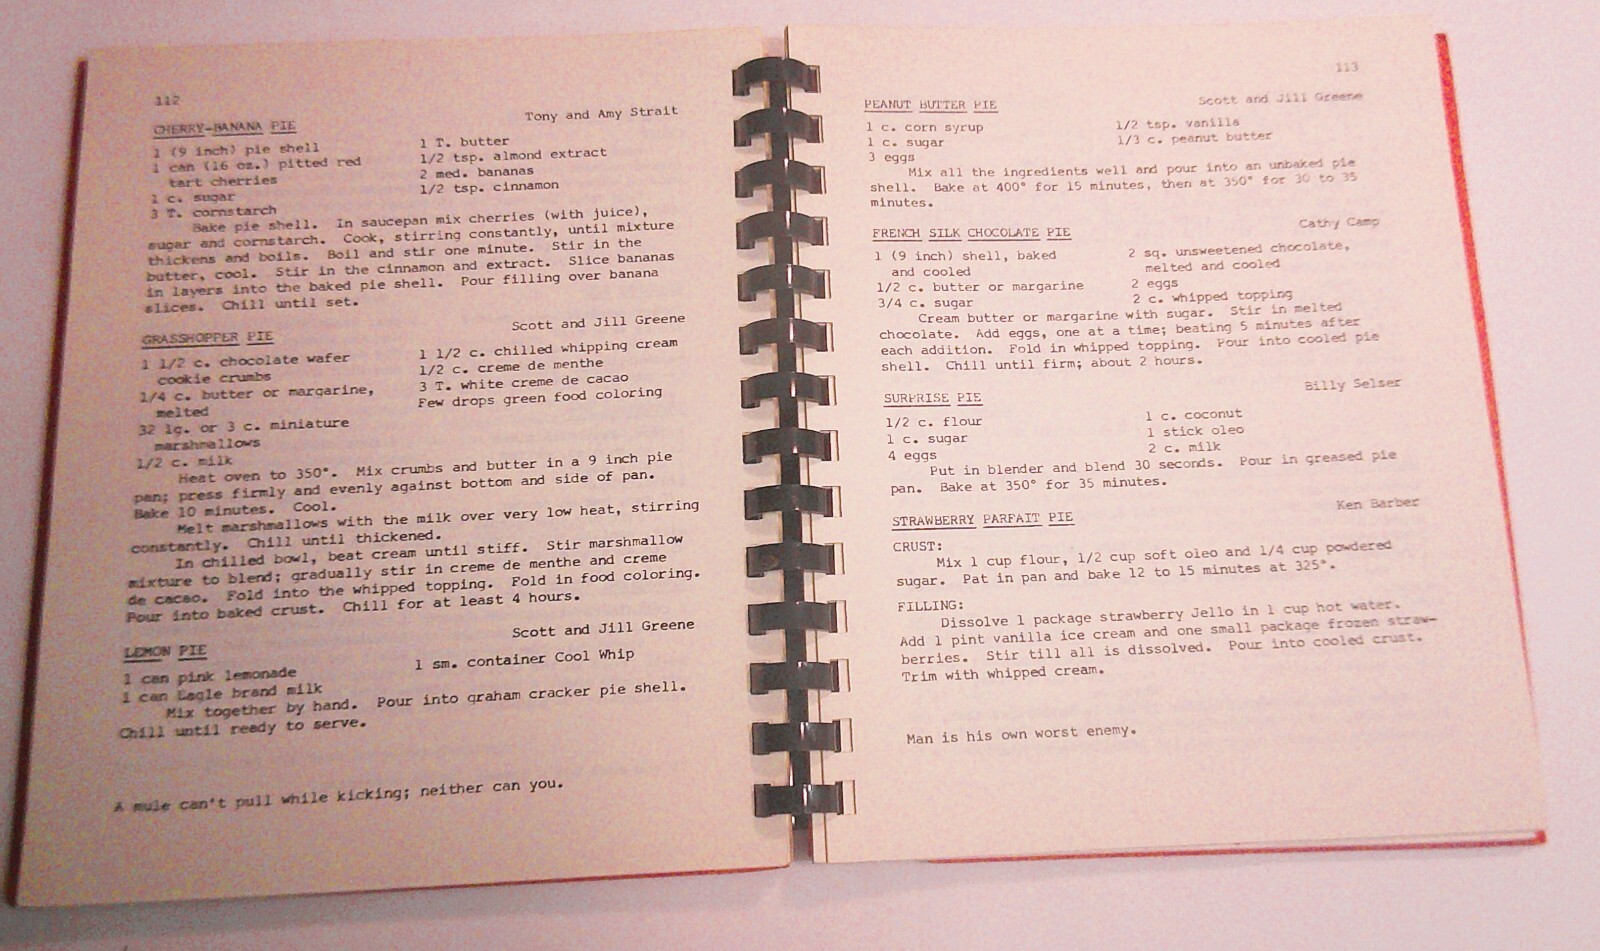 112
Tony and Amy Strait
CHERRY-BANANA PIE
1 (9 inch) pie shell
1 can (16 oz.) pitted red
tart cherries
1 c. sugar
3 T. cornstarch
1 T. butter
1/2 tsp. almond extract
2 med. bananas
1/2 tsp. cinnamon
Bake pie shell. In saucepan mix cherries (with juice),
sugar and cornstarch. Cook, stirring constantly, until mixture
thickens and boils. Boil and stir one minute. Stir in the
butter, cool. Stir in the cinnamon and extract. Slice bananas
in layers into the baked pie shell. Pour filling over banana
slices. Chill until set.
Scott and Jill Greene
GRASSHOPPER PIE
1 1/2 c. chocolate wafer
cookie crumbs
1/4 c. butter or margarine,
melted
32 lg. or 3 c. miniature
marshmallows
1/2 c. milk
1 1/2 c. chilled whipping cream
1/2 c. creme de menthe
3 T. white creme de cacao
Few drops green food coloring
Heat oven to 350°. Mix crumbs and butter in a 9 inch pie
pan; press firmly and evenly against bottom and side of pan.
Bake 10 minutes. Cool.
Melt marshmallows with the milk over very low heat, stirring
constantly. Chill until thickened.
In chilled bowl, beat cream until stiff. Stir marshmallow
mixture to blend; gradually stir in creme de menthe and creme
de cacao. Fold into the whipped topping. Fold in food coloring.
Pour into baked crust. Chill for at least 4 hours.
Scott and Jill Greene
LEMON PIE
1 can pink lemonade
1 can Eagle brand milk
1 sm. container Cool Whip
Mix together by hand. Pour into graham cracker pie shell.
Chill until ready to serve.
A mule can't pull while kicking; neither can you.
113
Scott and Jill Greene
PEANUT BUTTER PIE
1 c. corn syrup
1 c. sugar
3 eggs
1/2 tsp. vanilla
1/3 c. peanut butter
Mix all the ingredients well and pour into an unbaked pie
shell. Bake at 400° for 15 minutes, then at 350° for 30 to 35
minutes.
Cathy Camp
FRENCH SILK CHOCOLATE PIE
1 (9 inch) shell, baked
and cooled
1/2 c. butter or margarine
3/4 c. sugar
2 sq. unsweetened chocolate,
melted and cooled
2 eggs
2 c. whipped topping
Cream butter or margarine with sugar. Stir in melted
chocolate. Add eggs, one at a time; beating 5 minutes after
each addition. Fold in whipped topping. Pour into cooled pie
shell. Chill until firm; about 2 hours.
Billy Selser
SURPRISE PIE
1/2 c. flour
1 c. sugar
4 eggs
1 c. coconut
1 stick oleo
2 c. milk
Put in blender and blend 30 seconds. Pour in greased pie
pan. Bake at 350° for 35 minutes.
Ken Barber
STRAWBERRY PARFAIT PIE
CRUST:
Mix 1 cup flour, 1/2 cup soft oleo and 1/4 cup powdered
sugar. Pat in pan and bake 12 to 15 minutes at 325°.
FILLING:
Dissolve 1 package strawberry Jello in 1 cup hot water.
Add 1 pint vanilla ice cream and one small package frozen straw-
berries. Stir till all is dissolved. Pour into cooled crust.
Trim with whipped cream.
Man is his own worst enemy.